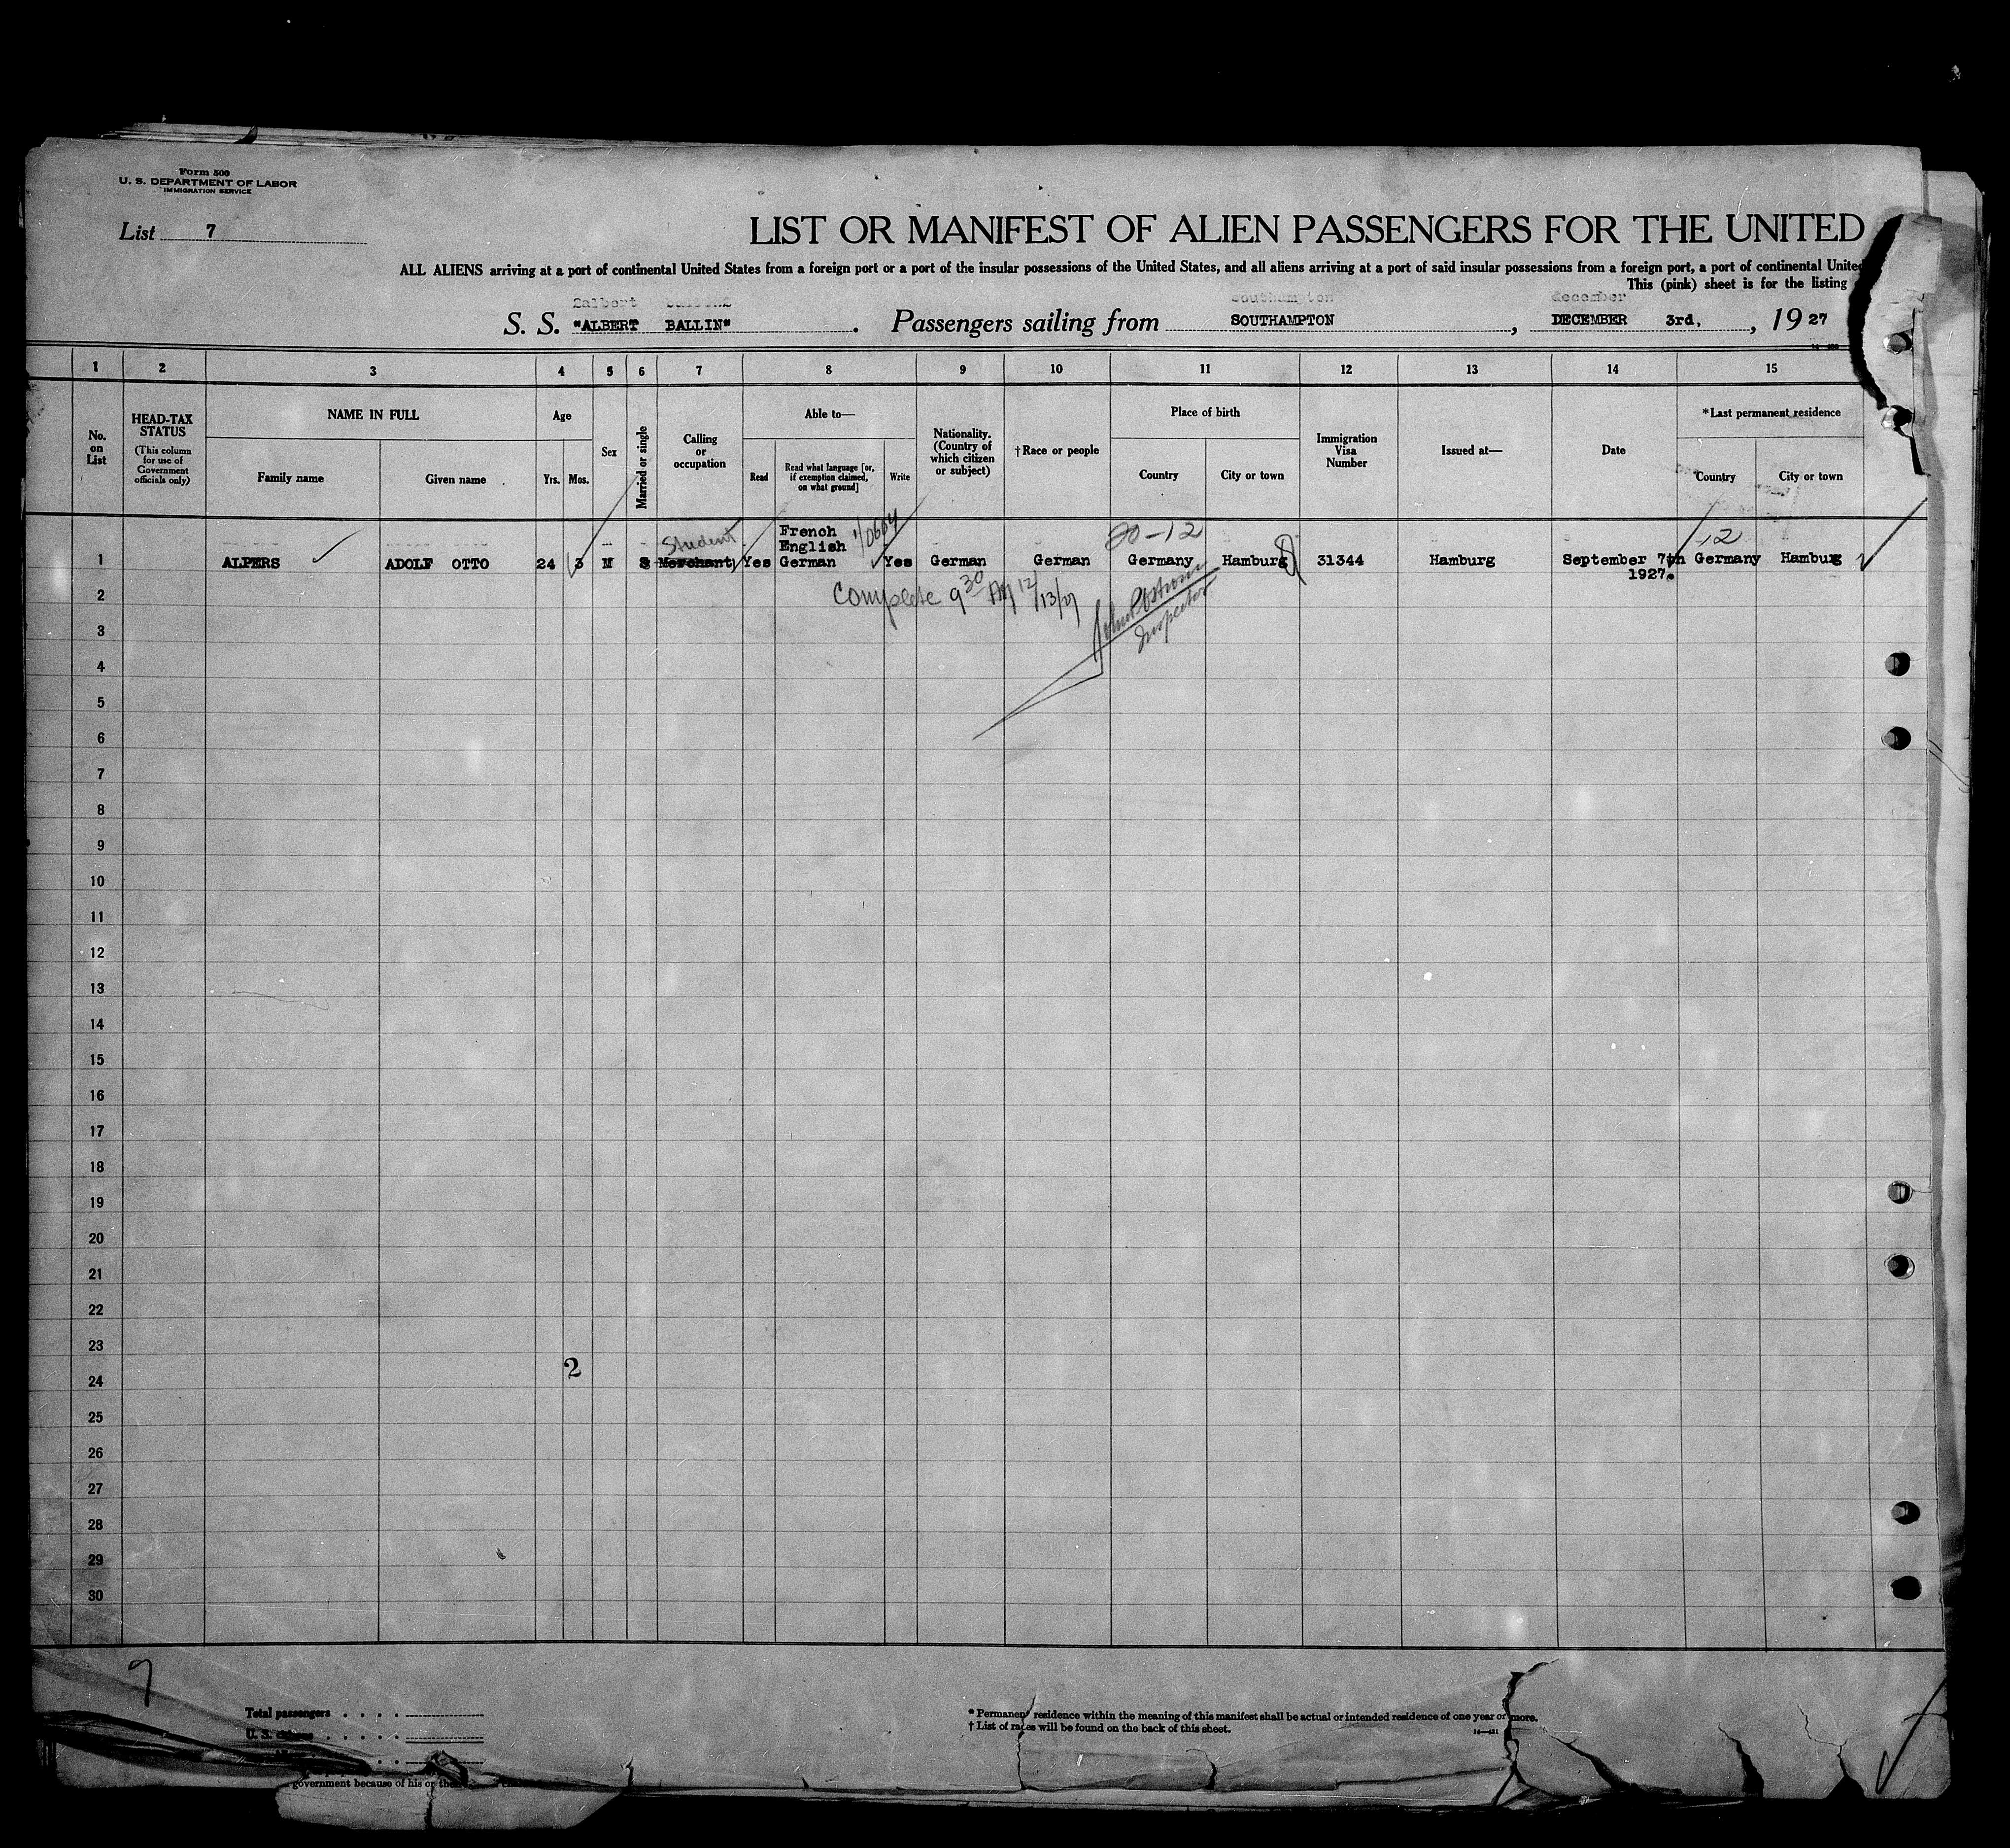 Form 500
U. S. DEPARTMENT OF LABOR
IMMIGRATION SERVICE
List 7
LIST OR MANIFEST OF ALIEN PASSENGERS FOR THE UNITED
ALL ALIENS arriving at a port of continental United States from a foreign port or a port of the insular possessions of the United States, and all aliens arriving at a port of said insular possessions from a foreign port, a port of continental United
This (pink) sheet is for the listing
S. S. "ALBERT BALLIN". Passengers sailing from SOUTHAMPTON, DECEMBER 3rd, , 19 27
1 2 3 4 5 6 7 8 9 10 11 12 13 14 15
No. on List
HEAD-TAX STATUS
(This column for use of Government officials only)
NAME IN FULL
Family name Given name
Age
Yrs. Mos.
Sex
Married or single
Calling or occupation
Able to—
Read
Read what language [or, if exemption claimed, on what ground]
Write
Nationality. (Country of which citizen or subject)
†Race or people
Place of birth
Country City or town
Immigration Visa Number
Issued at—
Date
*Last permanent residence
Country City or town
Student French 20-12 12
English
1 ALPERS ADOLF OTTO 24 3 M S Merchant Yes German Yes German German Germany Hamburg 31344 Hamburg September 7th Germany Hamburg
1927.
2 Complete 9 30 AM 12/13/27
Inspector
3
4
5
6
7
8
9
10
11
12
13
14
15
16
17
18
19
20
21
22
23
2
24
25
26
27
28
29
30
Total passengers . . . .
U. S. citizens . . . .
* Permanent residence within the meaning of this manifest shall be actual or intended residence of one year or more.
† List of races will be found on the back of this sheet.
government because of his or